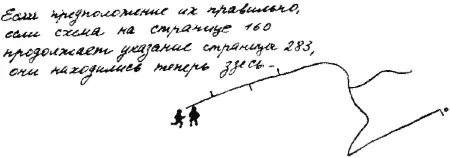 Если предположение их правильно,
если схема на странице 160
продолжает указание страницы 283,
они находились теперь здесь–